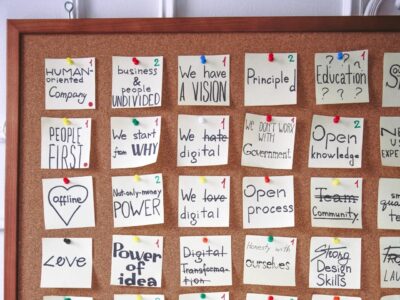 1
HUMAN-
oriented
Company
2
business
&
people
UNDIVIDED
1
We have
A VISION
2
Principled
1
? ? ?
Education
? ? ?
1
PEOPLE
FIRST
2
We start
from WHY
1
We hate
digital
1
We DON'T WORK
with
Government
2
Open
knowledge
offline
2
Not-only-money
POWER
1
We love
digital
1
Open
process
1
Team
Community
LOVE
1
Power
of
idea
Digital
Transforma-
tion
Honesty with
ourselves
Strong
Design
Skills